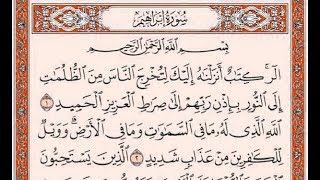 سُورَةُ إِبْرَاهِيمَ
بِسْمِ اللَّهِ الرَّحْمَٰنِ الرَّحِيمِ
الٓر ۚ كِتَابٌ أَنزَلْنَاهُ إِلَيْكَ لِتُخْرِجَ النَّاسَ مِنَ الظُّلُمَاتِ
إِلَى النُّورِ بِإِذْنِ رَبِّهِمْ إِلَىٰ صِرَاطِ الْعَزِيزِ الْحَمِيدِ ١
اللَّهِ الَّذِي لَهُ مَا فِي السَّمَاوَاتِ وَمَا فِي الْأَرْضِ ۗ وَوَيْلٌ
لِّلْكَافِرِينَ مِنْ عَذَابٍ شَدِيدٍ ٢ الَّذِينَ يَسْتَحِبُّونَ